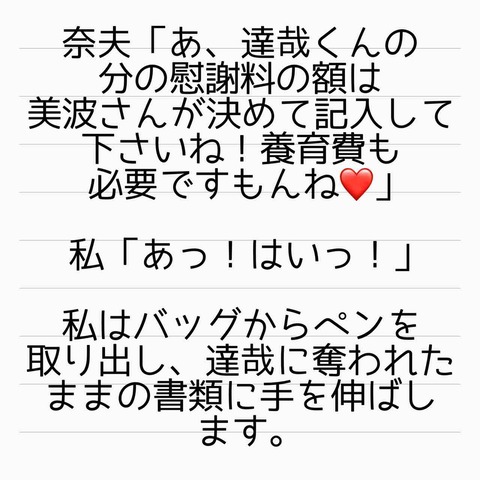 奈夫「あ、達哉くんの
分の慰謝料の額は
美波さんが決めて記入して
下さいね！養育費も
必要ですもんね❤️」
私「あっ！はいっ！」
私はバッグからペンを
取り出し、達哉に奪われた
ままの書類に手を伸ばし
ます。